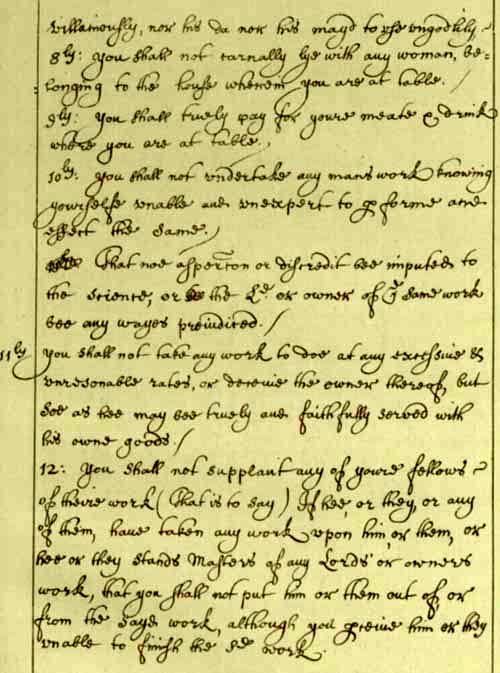 villainously, nor his da nor his mayd to use ungodlily
8ly: you shall not carnally lye with any woman, be-
longing to the house wherein you are at table. /
9ly: you shall truely pay for youre meate & drink
where you are at table. /
10ly: you shall not undertake any mans work knowing
yourselfe unable and unexpert to pforme and
effect the same. /
That noe aspertion or discredit bee imputed to
the science, or the Ld or owner of ye same work
bee any wayes preiudiced. /
11ly you shall not take any work to doe at any excessive &
unresonable rates, or deceive the owner thereof, but
soe as hee may bee truely and faithfully served with
his owne goods. /
12: you shall not supplant any of youre fellows
of theire work (That is to say) If hee, or they, or any
of them, have taken any work upon him, or them, or
hee or they stands Masters of any Lords or owners
work, that you shall not put him or them out of, or
from the sayd work, although you pceive him or they
unable to finish the sd work.